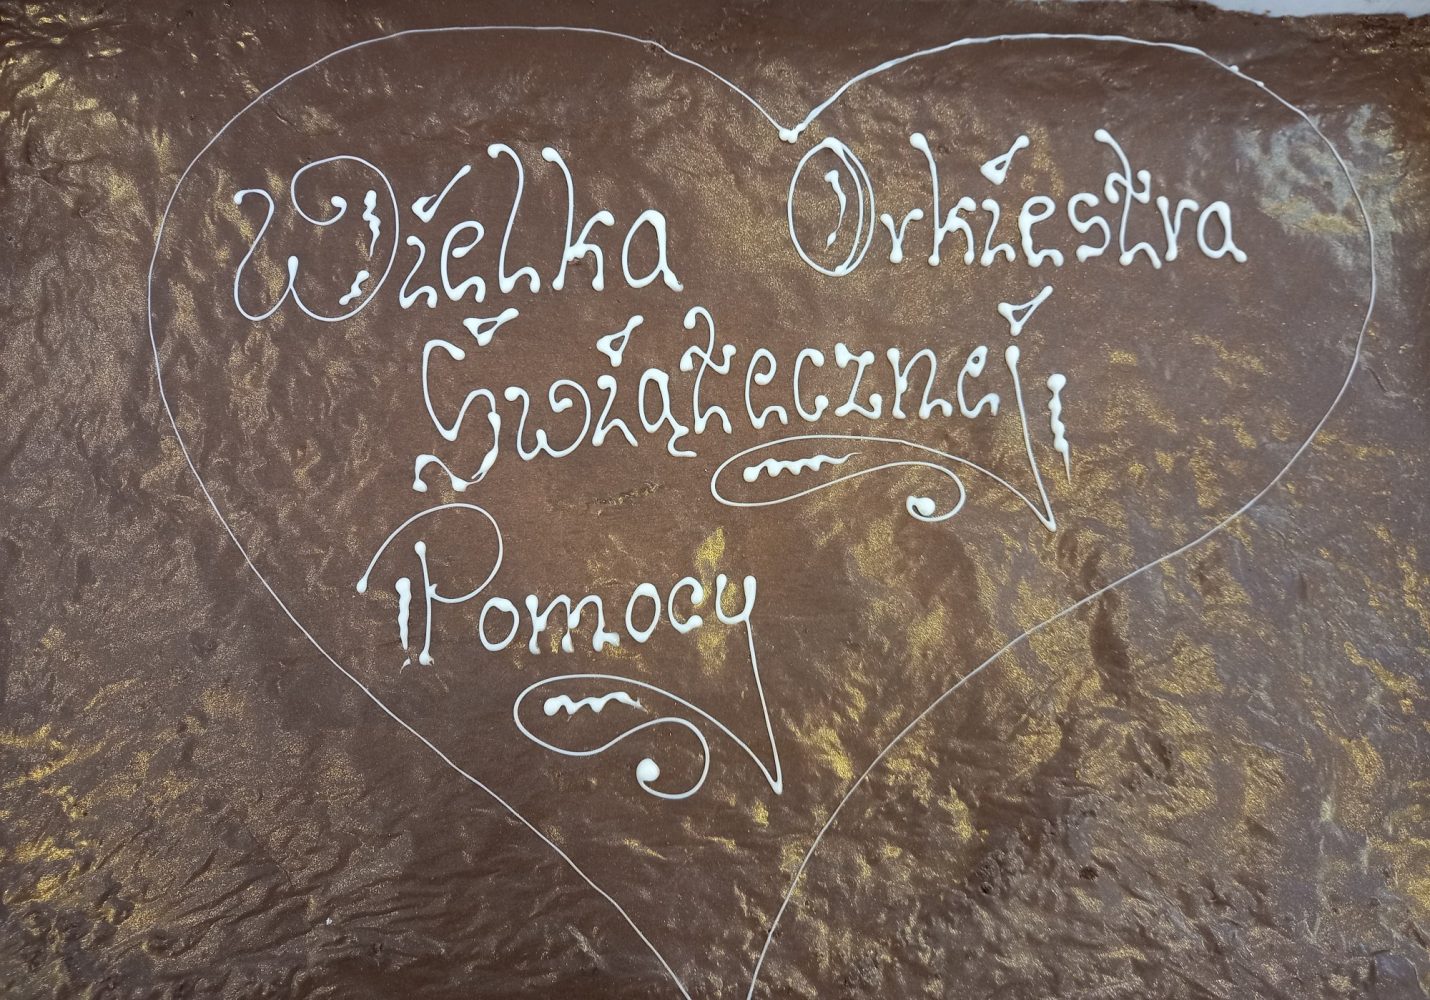 Wielka Orkiestra
Świątecznej
Pomocy